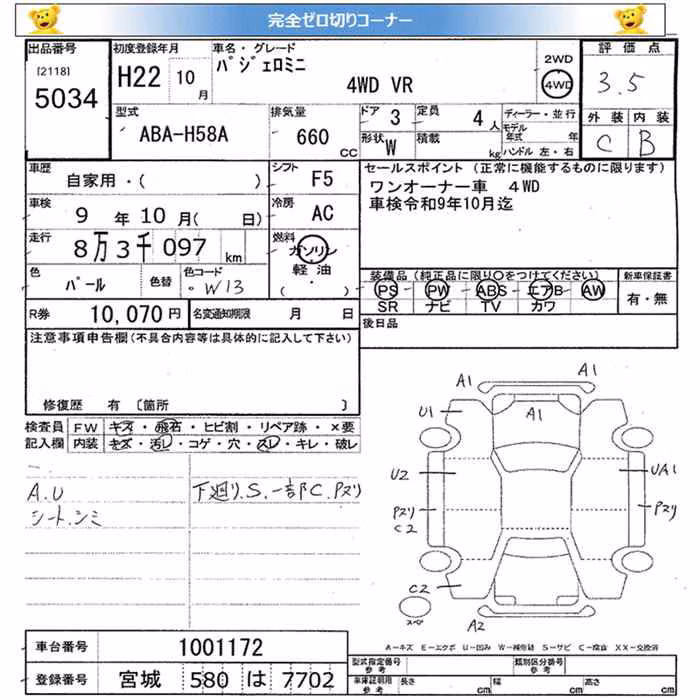 完全ゼロ切りコーナー
出品番号
[2118]
5034
初度登録年月
H22 10月
車名・グレード
パジェロミニ
4WD VR
2WD
4WD
評価点
3.5
外装 内装
C B
型式
ABA-H58A
排気量
660 CC
ドア 3
定員 4人
形状 W
積載 kg
ディーラー・並行
モデル年式 年
ハンドル 左・右
車歴
自家用・( )
シフト F5
車検 9年10月( 日)
冷房 AC
走行
8万3千097 km
燃料
ガソリン
軽油
・( )
色 パール
色替
色コード
・W13
セールスポイント (正常に機能するものに限ります)
ワンオーナー車 4WD
車検令和9年10月迄
装備品 (純正品に限り○をつけてください)
PS PW ABS エアB AW
SR ナビ TV カワ
新車保証書
有・無
後日品
R券 10,070円
名変通知期限 月 日
注意事項申告欄 (不具合内容等は具体的に記入して下さい)
修復歴 有 〔箇所 〕
検査員記入欄
FW キズ・飛石・ヒビ割・リペア跡・×要
内装 キズ・汚レ・コゲ・穴・スレ・キレ・破レ
A.U
シート.シミ
下廻り.S.一部C.Pヌリ
A1
A1
A1
U1
U2
UA1
Pヌリ
C2
Pヌリ
C2
A2
スペア
A－キズ E－エクボ U－凹み W－補修跡 S－サビ C－腐食 XX－交換済
車台番号 1001172
登録番号 宮城 580 は 7702
型式指定番号
参考
類別区分番号
参考
車体証明用
参考
長さ cm
幅 cm
高さ cm